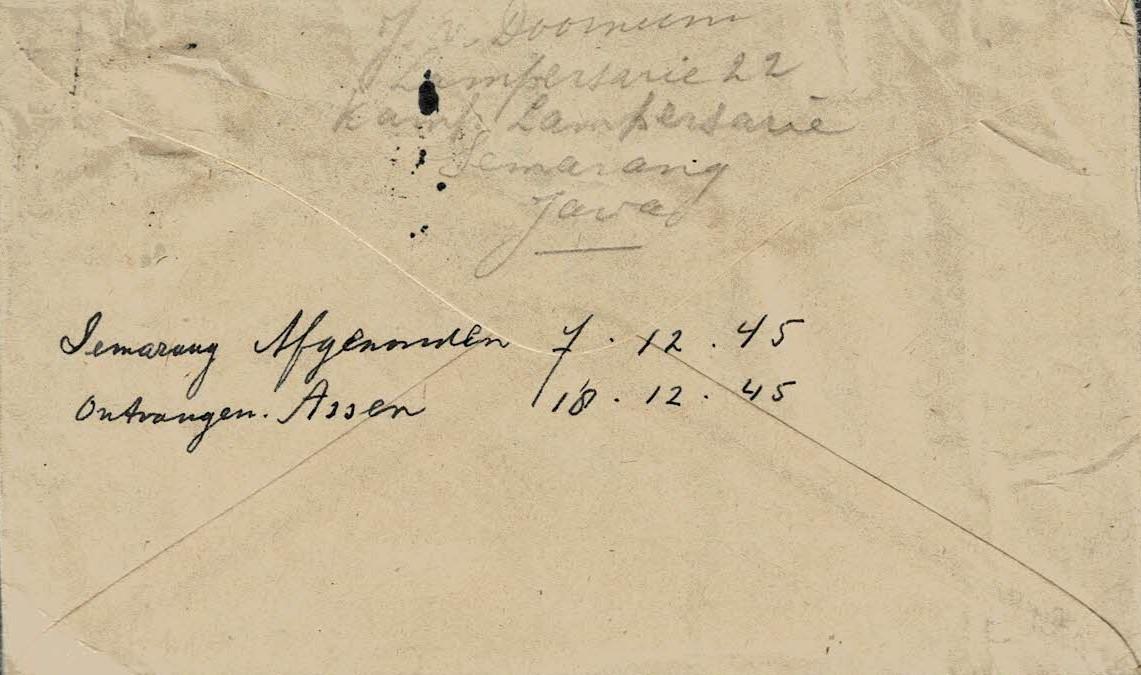 J. v. Doornum
Lampersarie 22
Kamp Lampersarie
Semarang
Java
Semarang Afgezonden 7. 12. 45
Ontvangen. Assen 18. 12. 45